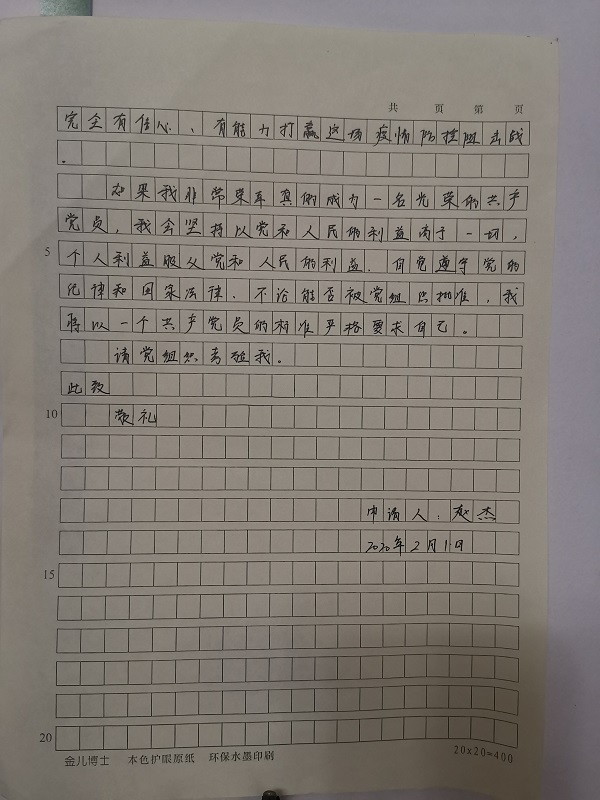 共 页 第 页
完全有信心、有能力打赢这场疫情防控阻击战
。
如果我非常荣幸真的成为一名光荣的共产
党员，我会坚持以党和人民的利益高于一切，
5 个人利益服从党和人民的利益．自觉遵守党的
纪律和国家法律．不论能否被党组织批准，我
将以一个共产党员的标准严格要求自己。
请党组织考验我。
此致
10 敬礼
申请人：赵杰
2020年2月1日
15
20
金儿博士 本色护眼原纸 环保水墨印刷 20x20=400